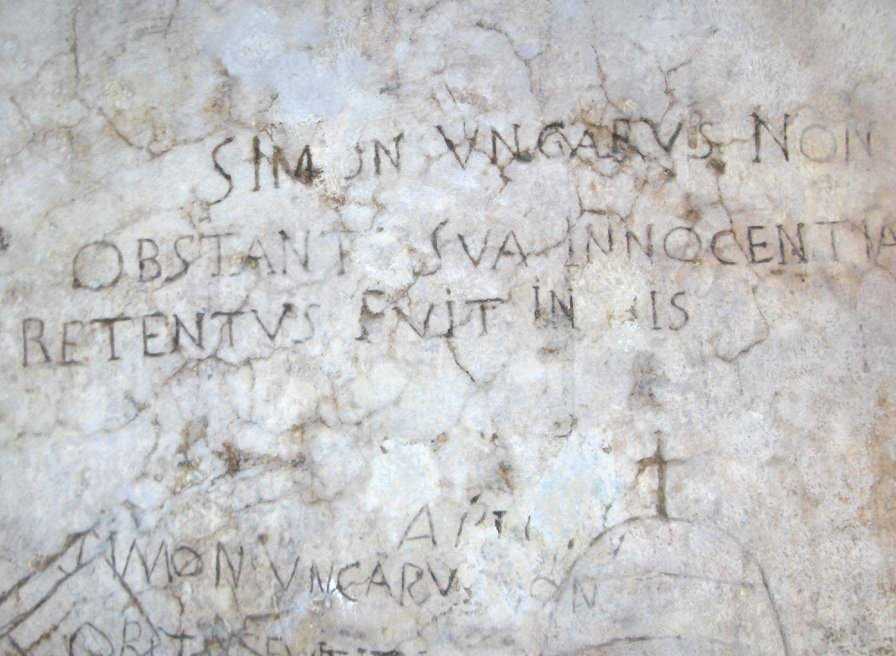 SIMON VNGARVS NON
OBSTANT SVA INNOCENTIA
RETENTVS FVIT IN
SIMON VNGARVS NON